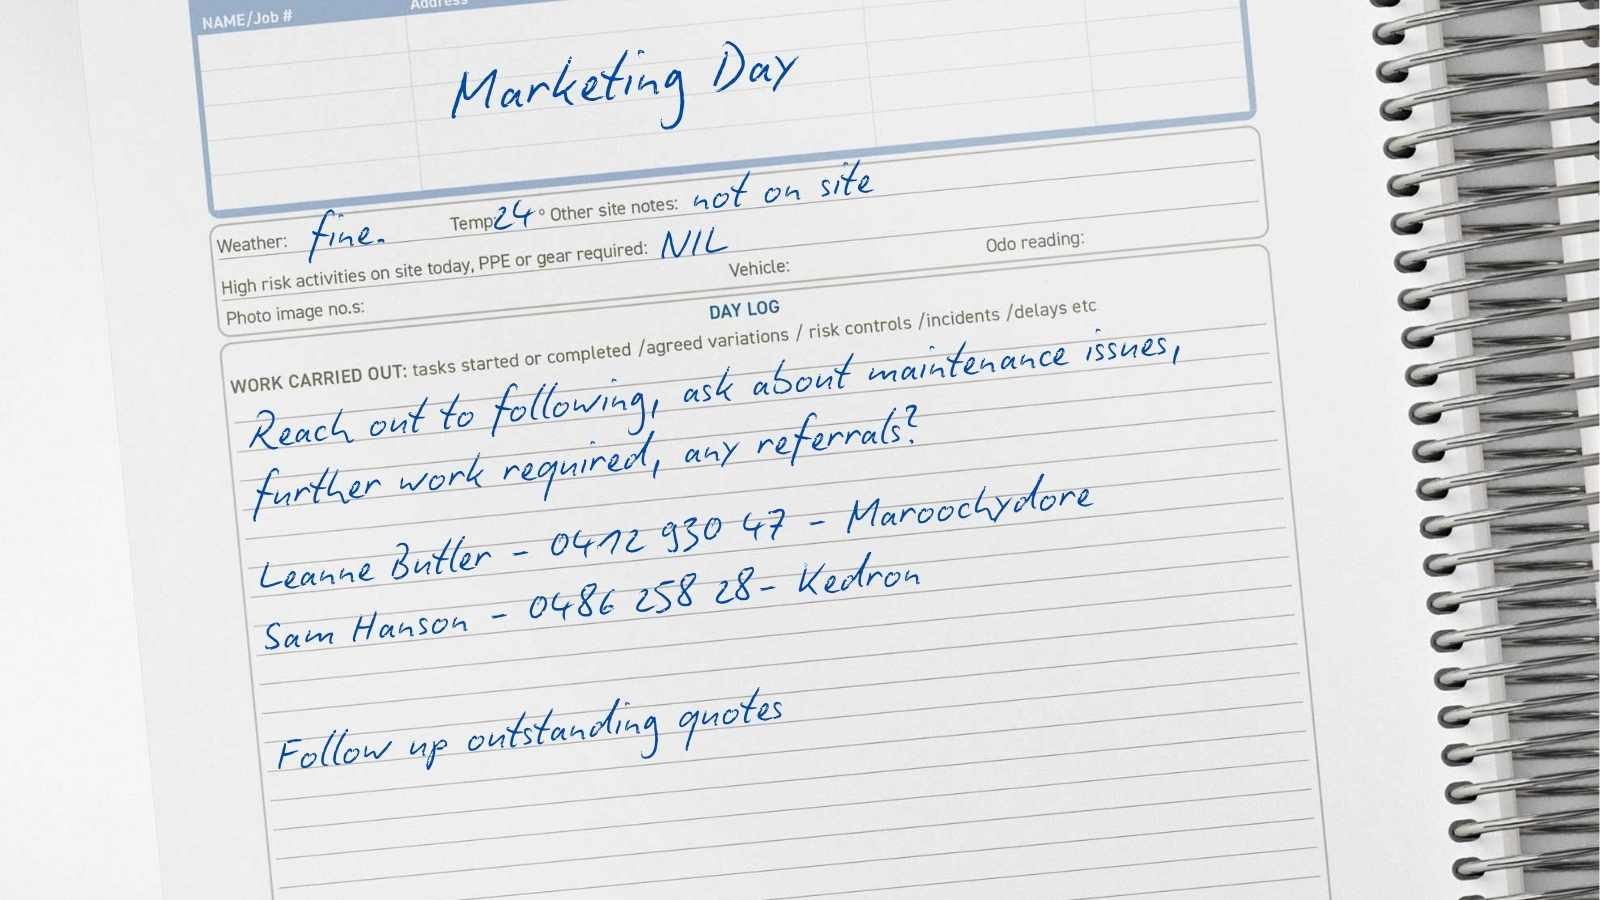 NAME/Job # Address
Marketing Day
Weather: fine. Temp 24° Other site notes: not on site
High risk activities on site today, PPE or gear required: NIL
Photo image no.s: Vehicle: Odo reading:
DAY LOG
WORK CARRIED OUT: tasks started or completed /agreed variations / risk controls /incidents /delays etc
Reach out to following, ask about maintenance issues,
further work required, any referrals?
Leanne Butler - 0412 930 47 - Maroochydore
Sam Hanson - 0486 258 28- Kedron
Follow up outstanding quotes